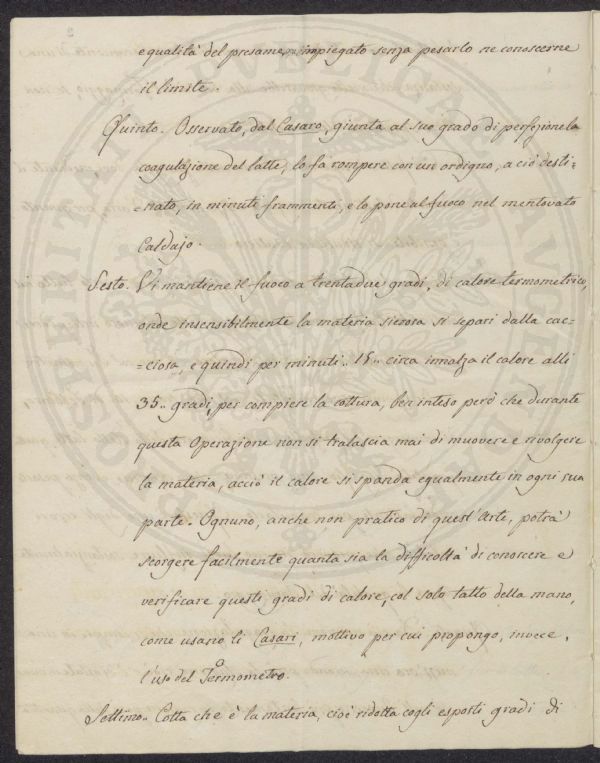 e qualità del presame, impiegato senza pesarlo ne conoscerne
il limite.
Quinto. Osservato, dal Casaro, giunta al suo grado di perfezione la
coagulazione del latte, lo fà rompere con un ordigno, a ciò desti=
=nato, in minuti frammenti, e lo pone al fuoco nel mentovato
Caldajo.
Sesto. Vi mantiene il fuoco a trentadue gradi, di calore termometrico,
onde insensibilmente la materia sierosa si separi dalla cac=
=ciosa, e quindi per minuti.. 15.. circa innalza il calore alli
35.. gradi, per compiere la cottura, ben inteso però che durante
questa Operazione non si tralascia mai di muovere e rivolgere
la materia, acciò il calore si spanda egualmente in ogni sua
parte. Ognuno, anche non pratico di quest'Arte, potrà
scorgere facilmente quanta sia la difficoltà di conoscere e
verificare questi gradi di calore, col solo tatto della mano,
come usano li Casari, mottivo per cui propongo, invece,
l'uso del Termometro.
Settimo.. Cotta che è la materia, cioè ridotta cogli esposti gradi di